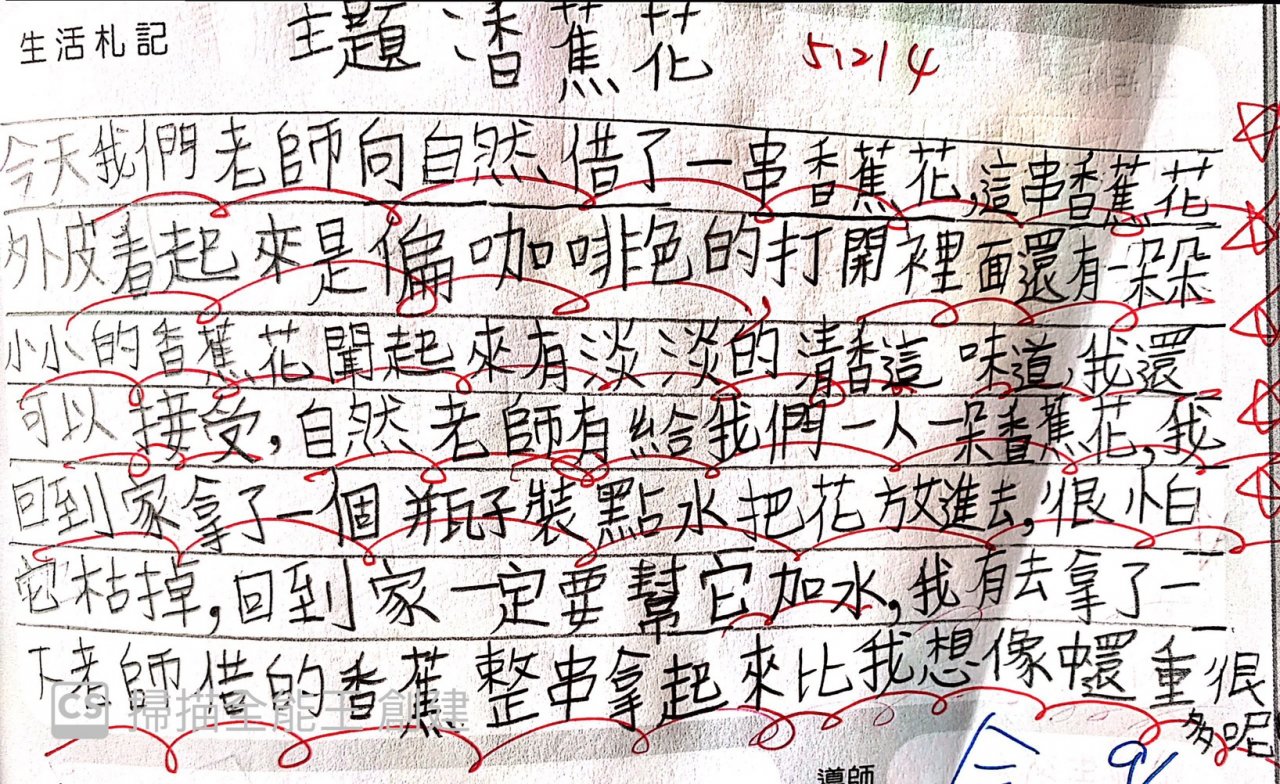 生活札記 主題:香蕉花 5,214
今天我們老師向自然借了一串香蕉花,這串香蕉花
外皮看起來是偏咖啡色的打開裡面還有一朵朵
小小的香蕉花聞起來有淡淡的清香這味道,我還
可以接受,自然老師有給我們一人一朵香蕉花,我
回到家拿了一個瓶子裝點水把花放進去,很怕
它枯掉,回到家一定要幫它加水,我有去拿了一
下老師借的香蕉整串拿起來比我想像中還重很
多呢
CS 掃描全能王 創建
導師